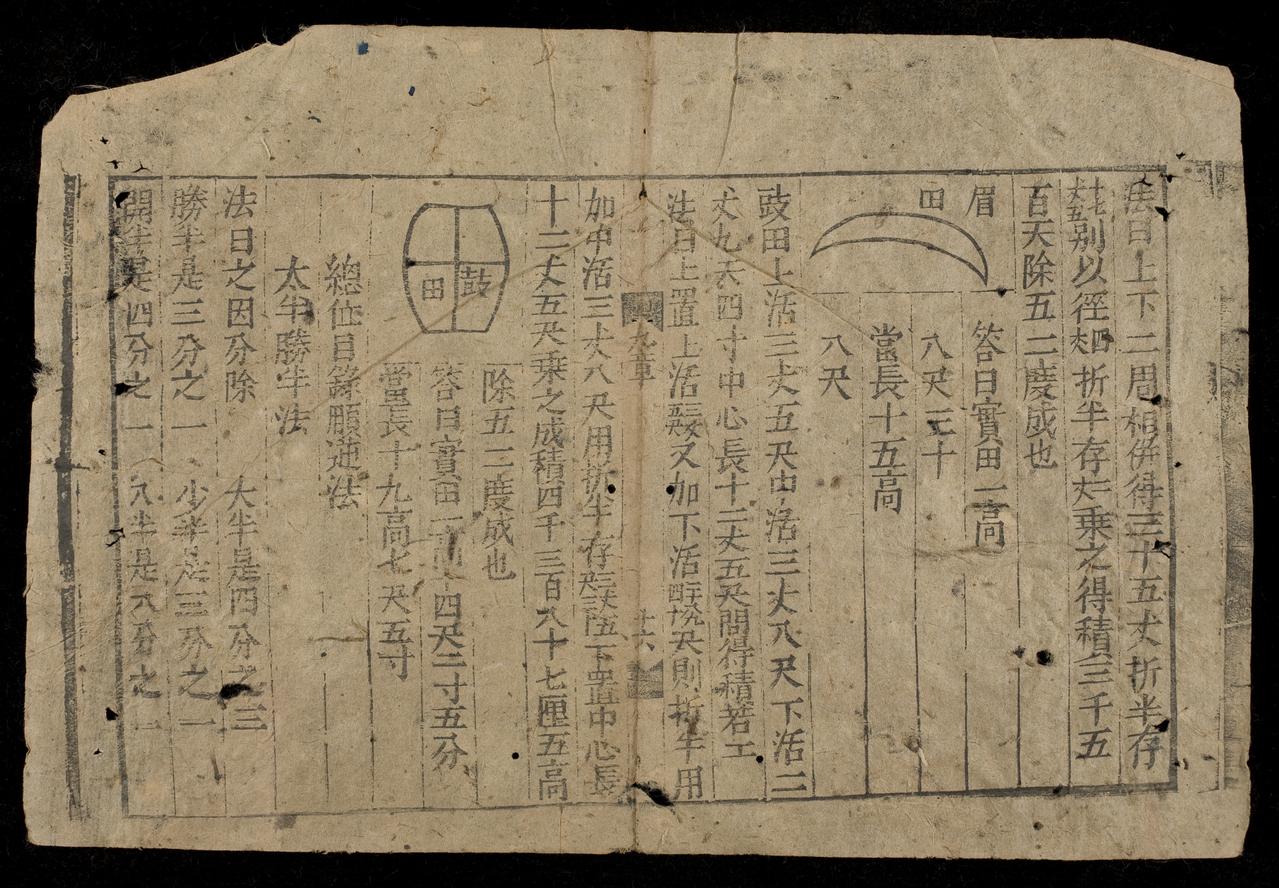 法曰上下二周相併得三十五丈折半存
別以徑折半存乘之得積三千五
百天除五二度成也
眉田
答曰實田一高
八尺三十
當長十五高
八尺
鼓田上活三丈五尺中活三丈八尺下活二
丈九尺四寸中心長十二丈五尺問得積若工
法曰上置上活又加下活尺則折半用
九章
十六
加中活三丈八尺用折半存下置中心長
十二丈五尺乘之成積四千三百八十七厘五高
除五二度成也
鼓田
答曰實田一高四尺二寸五分
當長十九高七尺五寸
總位目錄順逓法
太半勝半法
法曰之因分除 大半是四分之三
勝半是三分之一 少半是三分之一
開半是四分之一 八半是八分之一